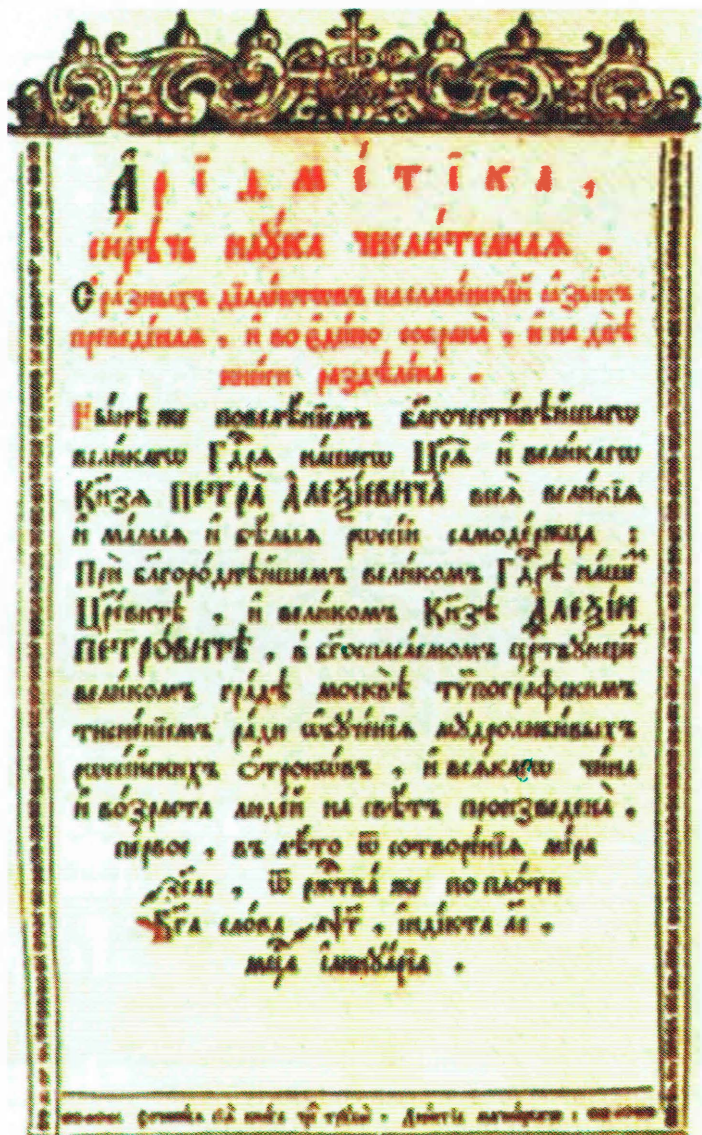 Арїѳме́тїка,
си́рѣчь нау́ка числи́телная.
С̾ ра́зныхъ дїале́ктѡвъ на славе́нскїй ѧ҆зы́къ
преведе́наѧ, и҆ во є҆ди́но собрана̀, и҆ на двѣ̀
кни́ги раздѣле́на.
Нн҃ѣ же повелѣ́нїемъ бл҃гочести́вѣйшагѡ
вели́кагѡ Гд҃рѧ на́шегѡ Цр҃ѧ̀ и҆ вели́кагѡ
Кн҃зѧ ПЕТРА̀ А҆ЛЕѮІ́ЕВИЧА всеѧ̀ вели́кїѧ
и҆ ма́лыѧ и҆ бѣ́лыѧ рѡссі́и самоде́ржца:
Прѝ бл҃горо́днѣйшемъ вели́комъ Гд҃рѣ на́шемъ
Цр҃е́вичѣ, и҆ вели́комъ Кн҃зѣ А҆ЛЕѮІ́И
ПЕТРО́ВИЧѢ, в̾ бг҃оспаса́емомъ црⷭ҇твꙋющемъ
вели́комъ гра́дѣ москвѣ̀ тѷпогра́фскимъ
тисне́нїемъ ра́ди ѡ҆бꙋче́нїѧ мꙋдролюби́выхъ
рѡссі́йскихъ ѻ҆́трокѡвъ, и҆ всѧ́кагѡ чи́на
и҆ во́зраста люде́й на свѣ́тъ произведена̀,
пе́рвое, въ лѣ́то ѿ сотворе́нїѧ мі́ра
҂зс҃аі, ѿ рⷤтва̀ же по пло́ти
Бг҃а сло́ва ҂аѱ҃г, і҆ндї́кта аі҃,
мцⷭ҇а і҆аннꙋа́рїѧ.